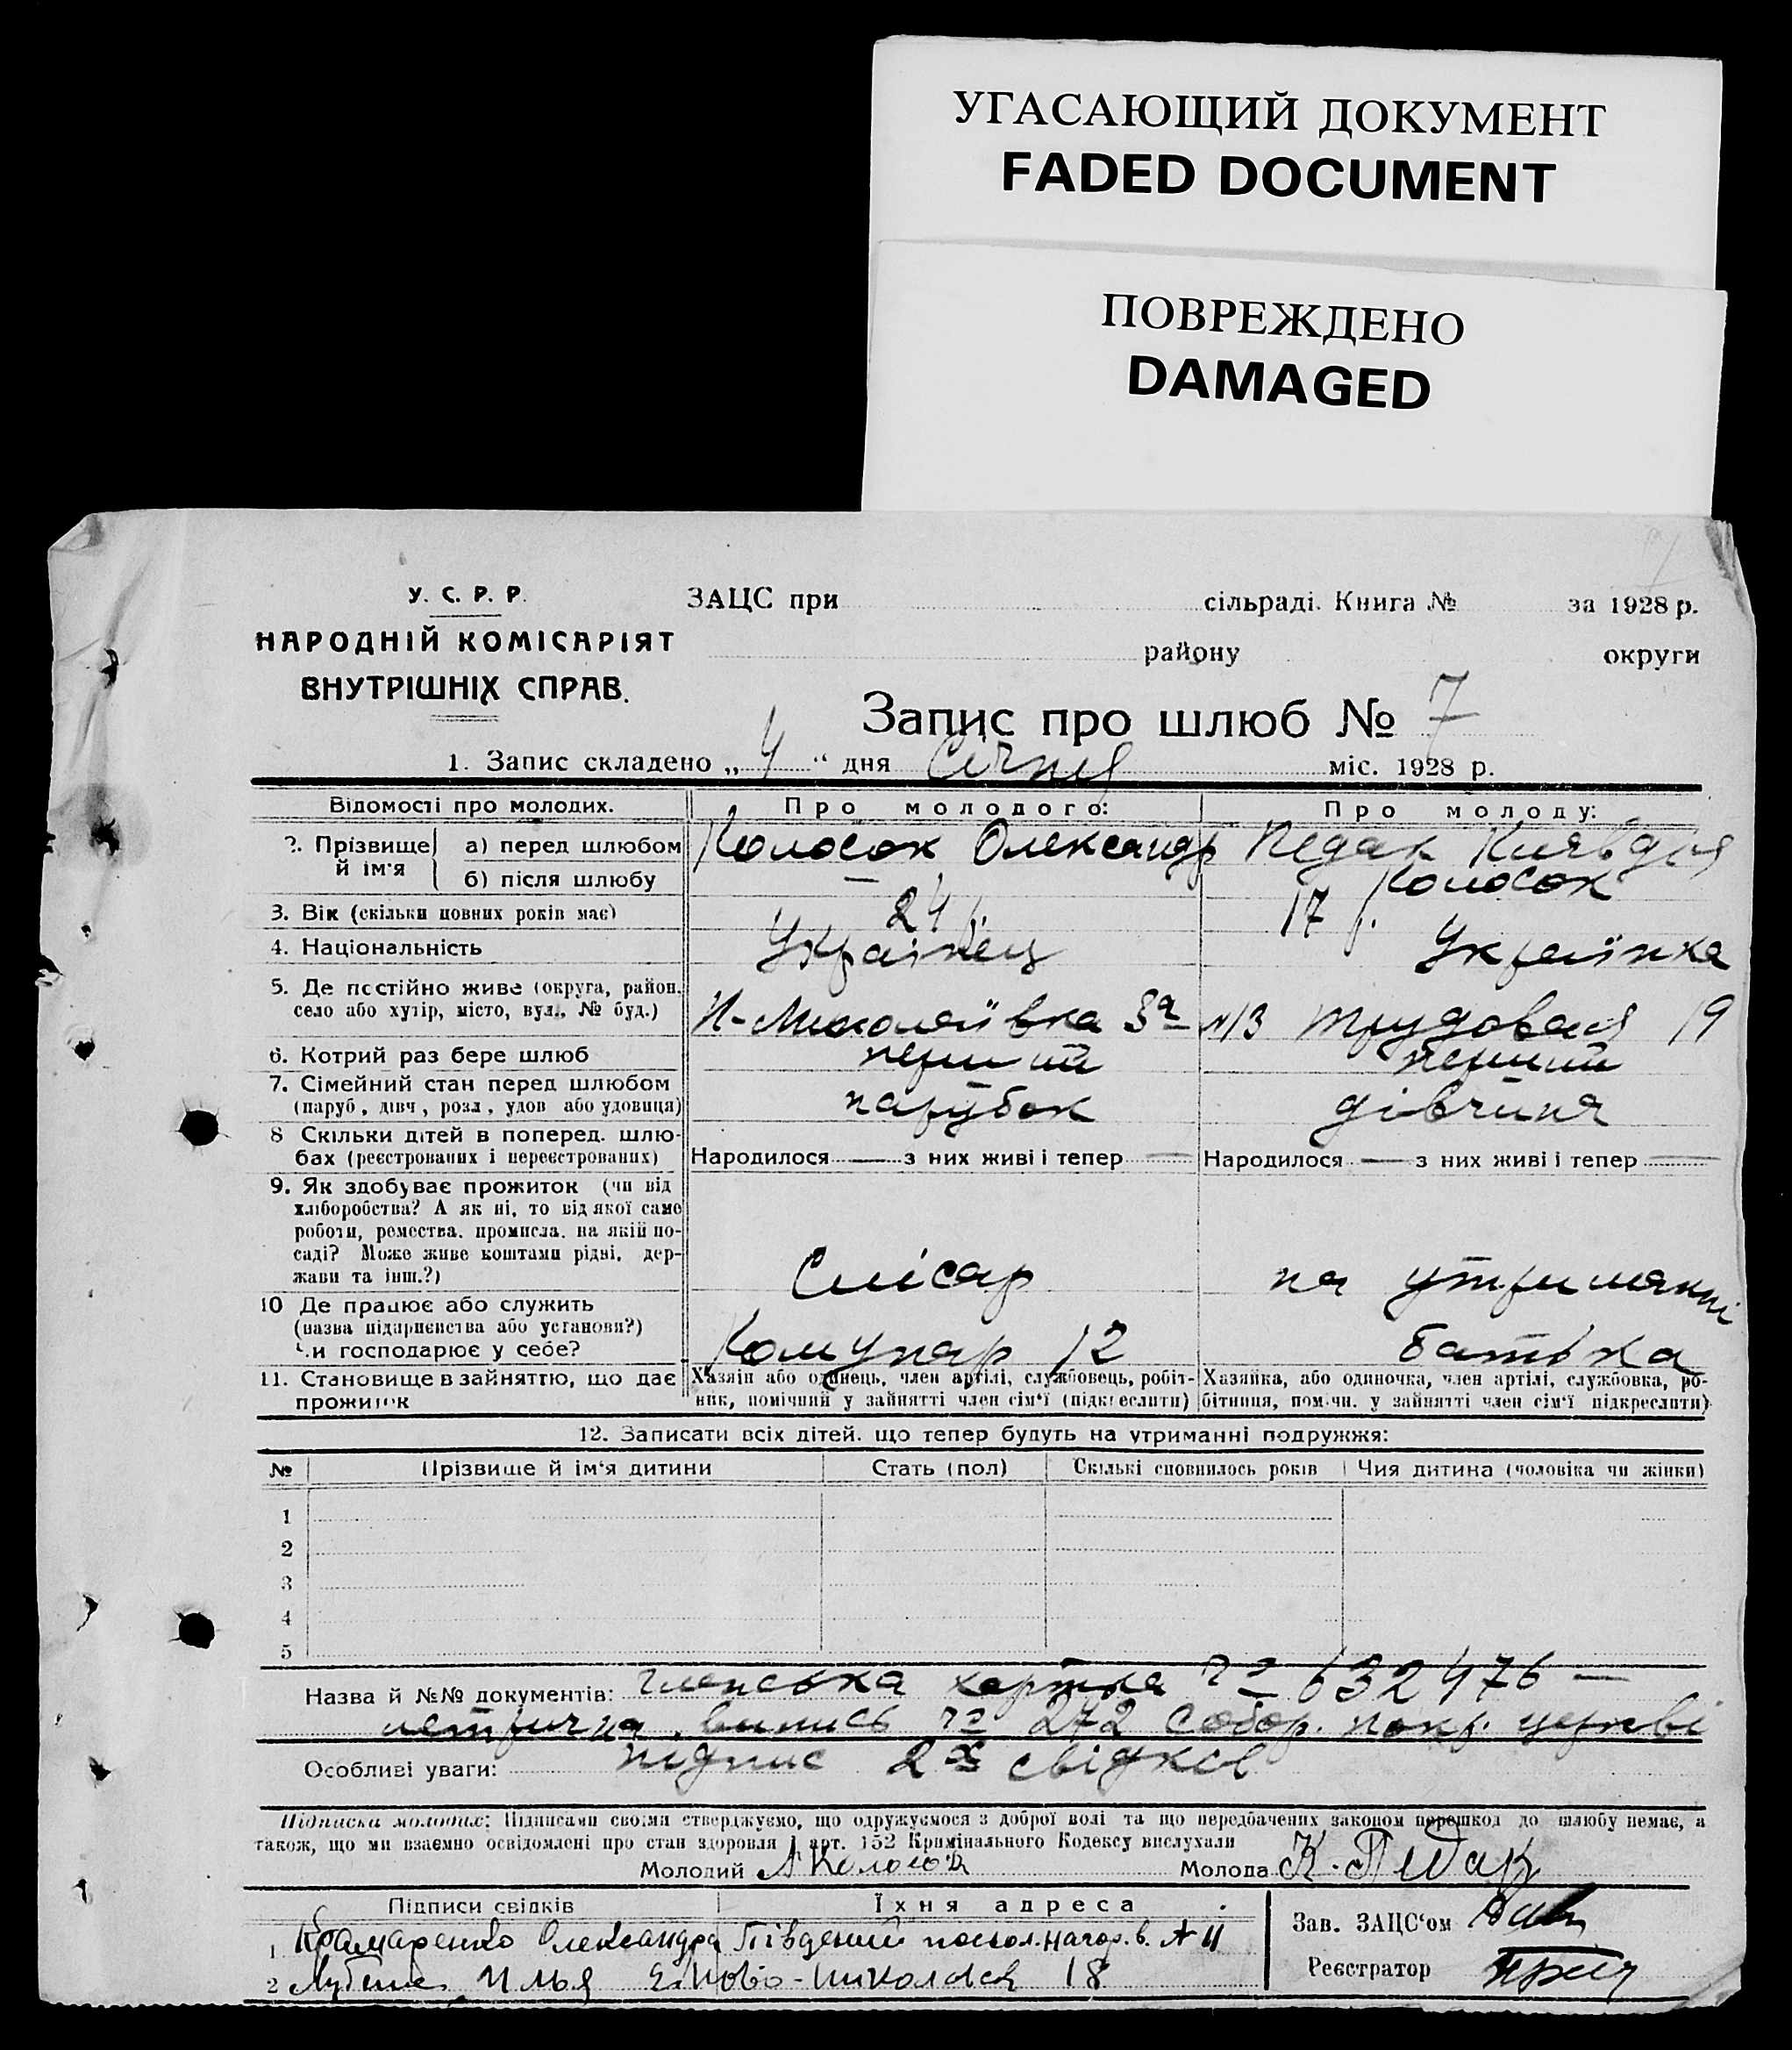 УГАСАЮЩИЙ ДОКУМЕНТ
FADED DOCUMENT
ПОВРЕЖДЕНО
DAMAGED
У. С. Р. Р.
НАРОДНІЙ КОМІСАРІЯТ
ВНУТРІШНІХ СПРАВ.
ЗАЦС при сільраді. Книга № за 1928 р.
району округи
Запис про шлюб № 7
1. Запис складено „ 4 “ дня Січня міс. 1928 р.
Відомості про молодих. Про молодого: Про молоду:
2. Прізвище й ім'я а) перед шлюбом Колосок Олександр Педак Клавдія
б) після шлюбу — Колосок
3. Вік (скільки повних років має) 24 р. 17 р.
4. Національність Українец Українка
5. Де постійно живе (округа, район, село або хутір, місто, вул., № буд.) Н-Миколаївка 3а №13 Трудовая 19
6. Котрий раз бере шлюб перший перший
7. Сімейний стан перед шлюбом (паруб, дівч, розл, удов або удовиця) парубок дівчина
8 Скільки дітей в поперед. шлюбах (реєстрованих і нереєстрованих) Народилося — з них живі і тепер — Народилося — з них живі і тепер —
9. Як здобуває прожиток (чи від
хліборобства? А як ні, то від якої саме
роботи, ремества, промисла, на якій по-
саді? Може живе коштами рідні, дер-
жави та інш.?) Слісар на утриманні
10 Де працює або служить
(назва підприємства або установи?)
Чи господарює у себе? Комунар 12 батька
11. Становище в зайняттю, що дає прожиток
Хазяїн або одинець, член артілі, службовець, робіт-
ник, помічний у зайнятті член сім'ї (підкреслити)
Хазяйка, або одиночка, член артілі, службовка, ро-
бітниця, помічн. у зайнятті член сім'ї підкреслити)
12. Записати всіх дітей, що тепер будуть на утриманні подружжя:
№ Прізвище й ім'я дитини Стать (пол) Скількі сповнилось років Чия дитина (чоловіка чи жінки)
1
2
3
4
5
Назва й №№ документів: членська картка № 632476 —
метрична випись № 272 собор. покр. церкві
Особливі уваги: підпис 2х свідків
Підписка молодих: Підписами своїми стверджуємо, що одружуємося з доброї волі та що передбачених законом перешкод до шлюбу немає, а
також, що ми взаємно освідомлені про стан здоровля і арт. 152 Кримінального Кодексу вислухали
Молодий А Колосок Молода К. Педак
Підписи свідків Їхня адреса
Зав. ЗАЦС'ом
1 Крамаренко Олександра Південний посьол. Нагор. в. № 11
Реєстратор
2 Илья Ново-Николаев 18